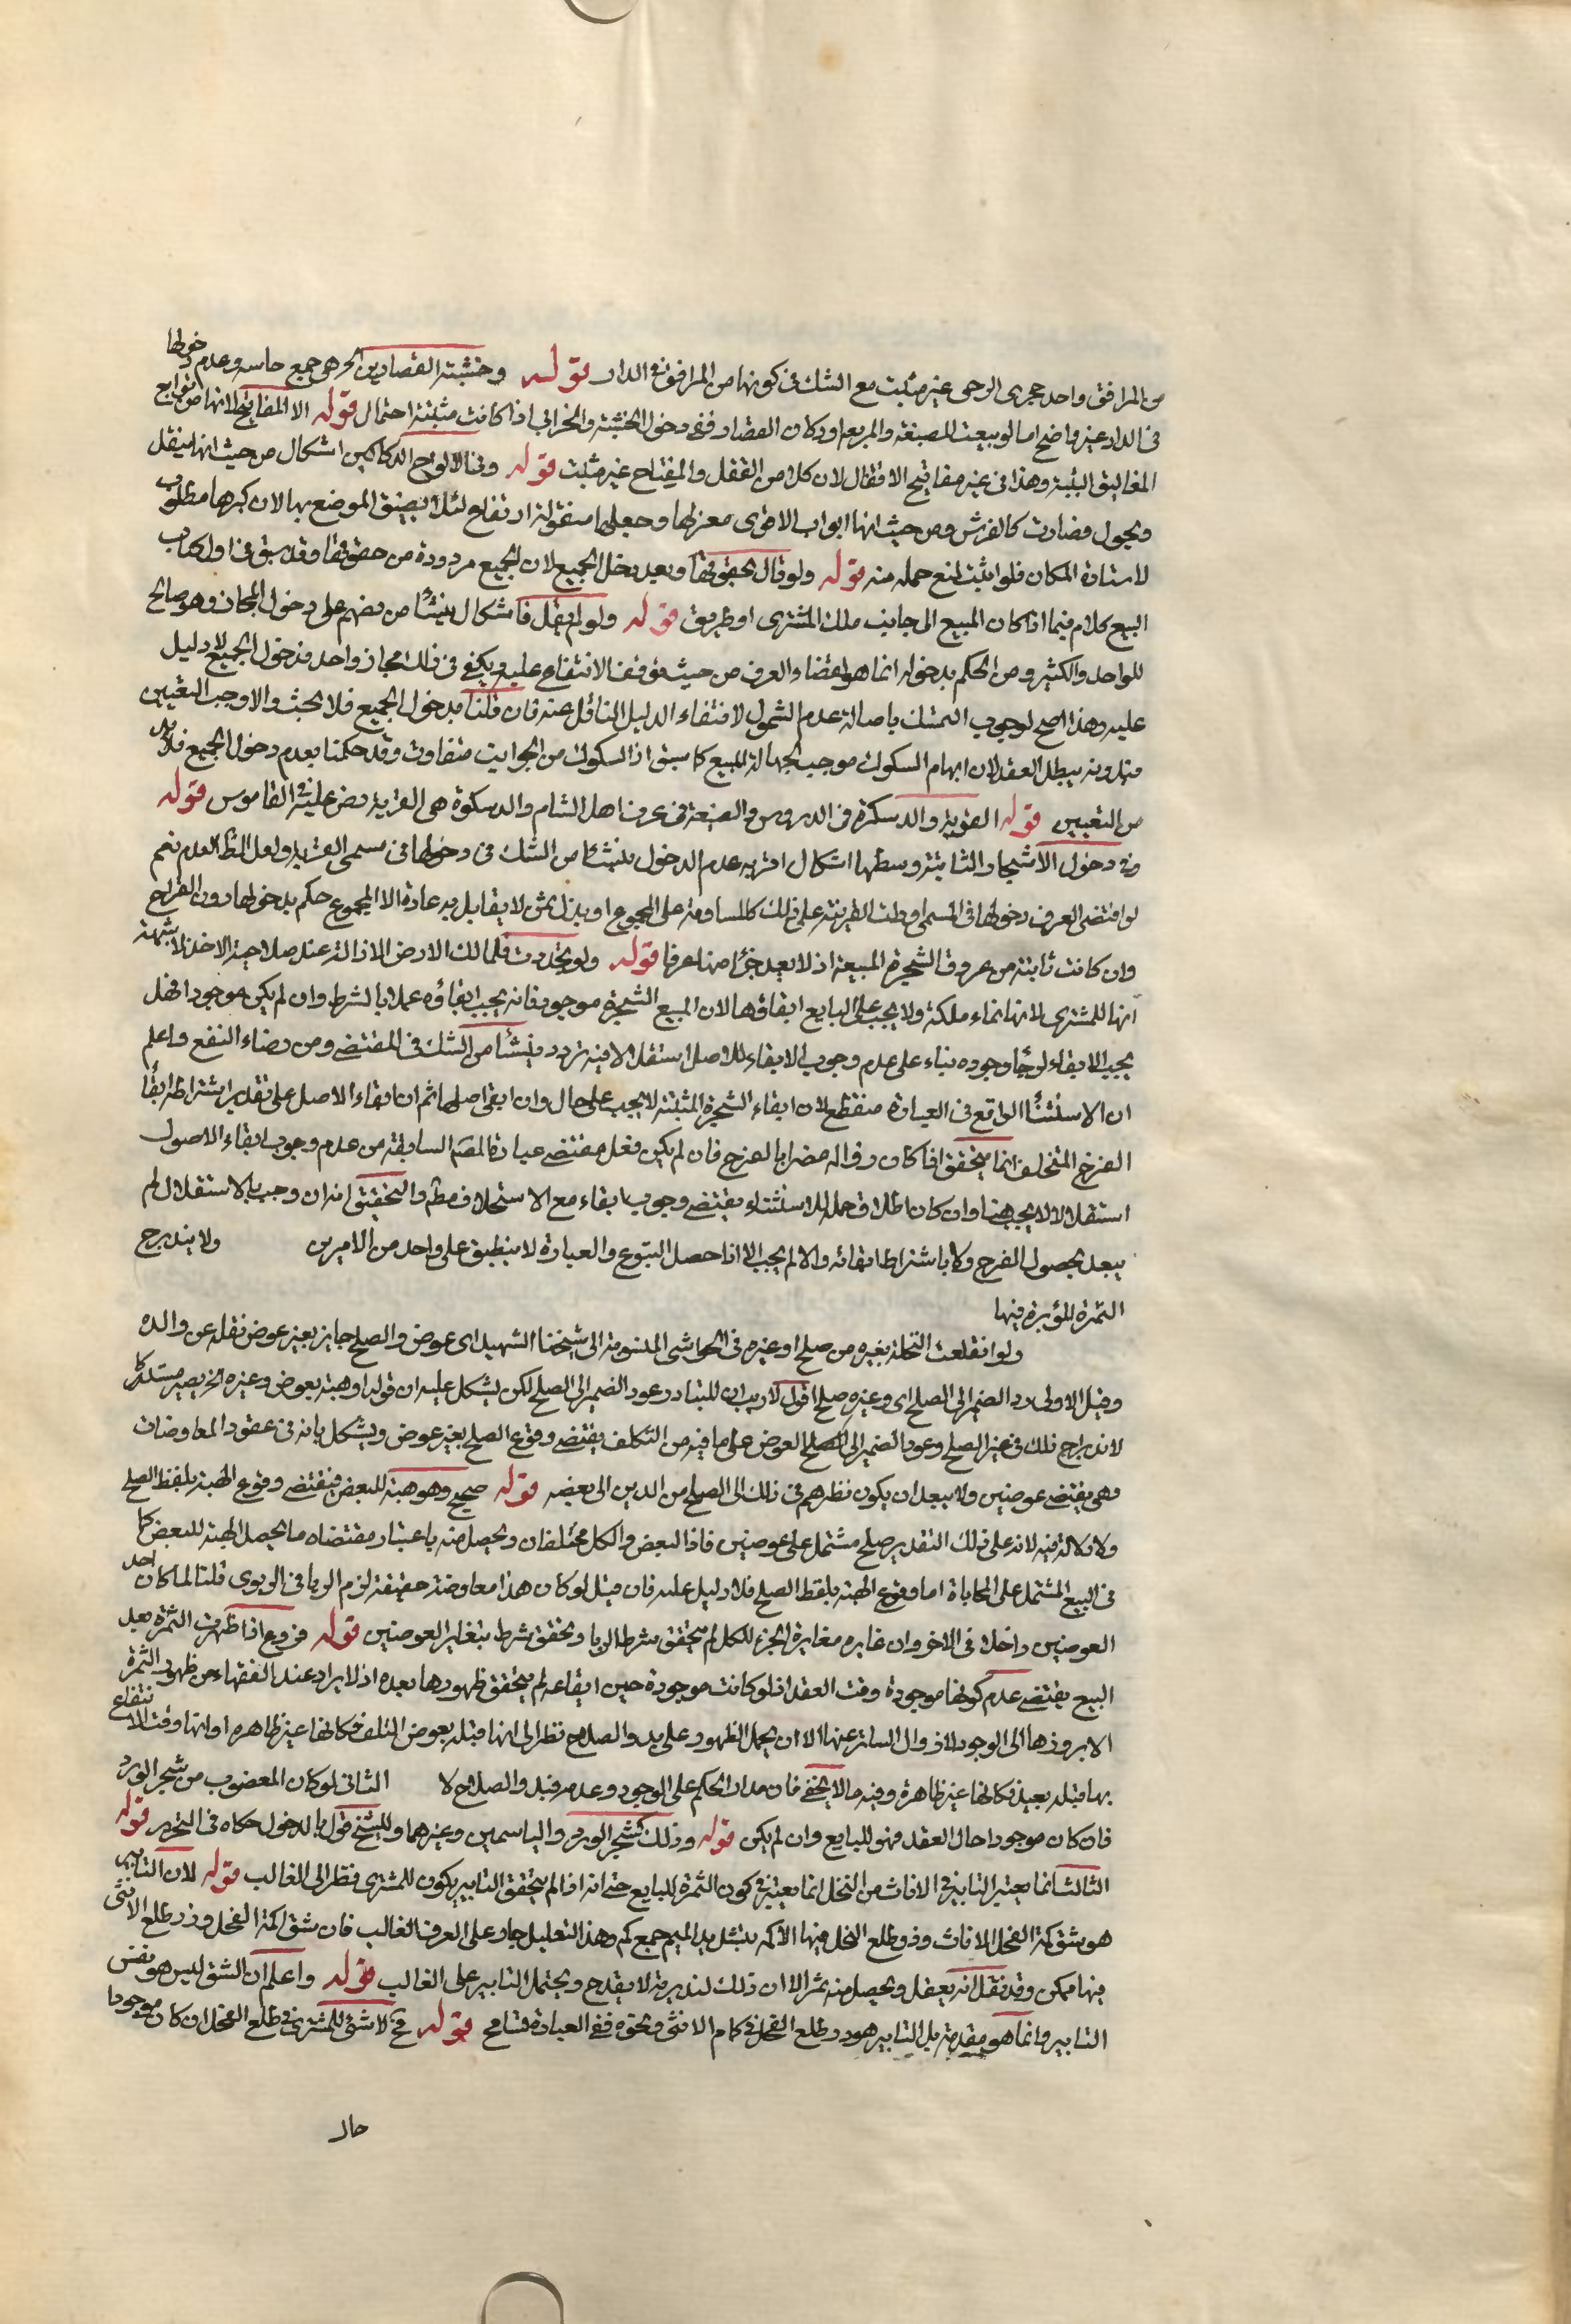 من المرافق واحد حجرى الرحى غير مثبت مع الشك فى كونها من المرافق فى الدار قوله وخشبة القصارين الخ هى جمع حاسه وعدم دخولها
فى الدار غير واضح اما لو بيعت للصبغة والمربعه او دكان القصار ففى دخول الخشبة والخرابى اذا كانت مثبتة احتمال قوله الا المفاتيح لانها من توابع
المغاليق المثبتة وهذا فى غير مفاتيح الاقفال لان كلا من القفل والمفتاح غير مثبت قوله وفى الالواح الدكاكين اشكال من حيث انها ينقل
ويحول فصارت كالفرش ومن حيث انها ابواب الاقوى معزلها وجعلها منقولة ارتفاع لئلا يضيق الموضع بها لان كبرها مطلوب
لاستارة المكان فلو اثبت لمنع حمله منه قوله ولو قال بحقوقها وبعد يدخل الجميع لان الجميع مردودة من حقوقها وقد سبق فى اول كتاب
البيع كلام فيما اذا كان المبيع الى جانب ملك المشترى او طريق قوله ولو لم يقل فاشكال ينشأ من نصهم على دخول المجاز وهو صالح
للواحد والكثير ومن الحكم بدخوله انما هو لاقتضاء العرف من حيث توقف الانتفاع عليه ويكفى فى ذلك مجاز واحد فدخول الجميع لا دليل
عليه وهذا اصح لوجوب التمسك باصالة عدم الشمول لانتفاء الدليل الناقل عنه فان قلنا بدخول الجميع فلا بحث والا وجب التعيين
فبدونه يبطل العقد لان ابهام السكوك موجب لجهالة المبيع كما سبق اذ السكوك من الجوانب متفاوت وقد حكمنا بعدم دخول الجميع فلا بد
من التعيين قوله القرية والدسكرة فى الدروس والضيعة فى عرف اهل الشام والدسكرة هى القرية نص عليه فى القاموس قوله
وفى دخول الاشجار النابتة وسطها اشكال اقربه عدم الدخول ينشأ من الشك فى دخولها فى مسمى القرية ولعل الظ العدم نعم
لو اقتضى العرف دخولها فى المسمى او دلت القرينة على ذلك كالمساومة على المجموع او بذل ثمن لا يقابل به عادة الا المجموع حكم بدخولها دون الفرع
وان كانت نابتة من عروق الشجرة المبيعة اذ لا يعد جزأ منها عرفا قوله ولو تجددت فلمالك الارض الازالة عند صلاحية الاخذ لا شبهة
انها للمشترى لانها نماء ملكه ولا يجب على البايع ابقاؤها لان المبيع الشجرة موجود فانه يجب ابقاؤه عملا بالشرط وان لم يكن موجودا فهل
يجب الابقاء لو جاء وجوده بناء على عدم وجوب الابقاء للاصل استقلالا فيه تردد ينشأ من الشك فى المقتضى ومن رضاء النفع واعلم
ان الاستثناء الواقع فى العبارة منقطع لان ابقاء الشجرة المثبتة لا يجب على حال وان ابقى اصلها ثم ان ابقاء الاصل على تقدير اشتراط ابقاء
الفرخ المتخلف انما يتحقق اذا كان زواله مضرا بالفرخ فان لم يكن فعل مقتضى عبارة المصنف السابقة من عدم وجوب ابقاء الاصول
استقلالا لا يجب هنا وان كان اطلاق حمله للاستثناء يقتضى وجوب ابقاء مع الاستخلاف مطم والتحقيق انه ان وجب بالاستقلال لم
يبعد بحصول الفرخ وكا باشتراط ابقائه والا لم يجب الا اذا حصل التبوع والعبارة لا ينطبق على واحد من الامرين ولا يندرج
الثمرة المؤبرة فيها
ولو انقلعت النخلة بغيره من صلح او غيره فى الحواشى المنسوبة الى شيخنا الشهيد اى عوض والصلح جايز بغير عوض نقله عن والده
وقيل الاولى رد الضمير الى الصلح اى وغيره صلح اقول لا ريب ان المتبادر عود الضمير الى الصلح لكن يشكل عليه ان قوله او هبة بعوض وغيره الخ يصير مستدركا
لاندراج ذلك فى غير الصلح وعود الضمير الى الصلح العوض على ما فيه من التكلف يقتضى وقوع الصلح بغير عوض ويشكل بانه فى عقود المعاوضات
وهى يقتضى عوضين ولا يبعد ان يكون نظرهم فى ذلك الى الصلح من الدين الى بعضه قوله صحيح وهو هبة للبعض فيقتضى وقوع الهبة بلفظ الصلح
ولا دلالة فيه لانه على ذلك التقدير صلح مشتمل على عوضين فاذا البعض والكل مختلفان ويحصل منه باعتبار مقتضاه ما يحصل الهبة للبعض كما
فى البيع المشتمل على المحاباة اما وقوع الهبة بلفظ الصلح فلا دليل عليه فان قيل لو كان هذا معاوضة حقيقة لزم الربا فى الربوى قلنا لما كان احد
العوضين داخلا فى الاخر وان غايره مغايرة الجزء للكل لم يتحقق شرط الربا ويحقق شرط بتغاير العوضين قوله فروع اذا ظهرت الثمرة بعد
البيع يقتضى عدم كونها موجودة وقت العقد اذ لو كانت موجودة حين ايقاعه لم يتحقق ظهورها بعده اذ لا يراد عند الفقهاء من ظهور الثمرة
الا بروزها الى الوجود لا زوال الساتر عنها الا ان يحمل الظهور على بدو الصلاح نظرا الى انها قبله بعوض التلف فكانها غير ظاهرة او انها وقت الانتفاع
بها قبله بعيد فكانها غير ظاهرة وفيه ما لا يخفى فان مدار الحكم على الوجود وعدمه قبل والصلاح لا الثانى لو كان المعضوب من شجر الورد
فان كان موجودا حال العقد فهو للبايع وان لم يكن قوله وذلك كشجر الورد والياسمين وغيرهما وللشيخ قول بالدخول حكاه فى التحرير قوله
الثالث انما يعتبر التابير فى الاناث من النخل انما يعتبر فى كون الثمرة للبايع حتى انه اذا لم يتحقق التابير يكون للمشترى فنظر الى الغالب قوله لان التابير
هو شق كمة الفحل الاناث وذر طلع النخل فيها الاكمه بتشديد الميم جمع كم وهذا التعليل جار على العرف الغالب فان شق اكمة الفحل وذر طلع الانثى
فيها ممكن وقد نقل انه يعقل ويحصل منه ثمر الا ان ذلك لندرته لا يقدح ويحتمل التابير على الغالب قوله واعلم ان الشق ليس هو نفس
التابير وانما هو مقدمة بل التابير هو ذر طلع الفحل فى كمام الانثى ونحوه ففى العبارة تسامح قوله فح لا شئ للمشترى فى طلع الفحل ان كان موجودا
حال